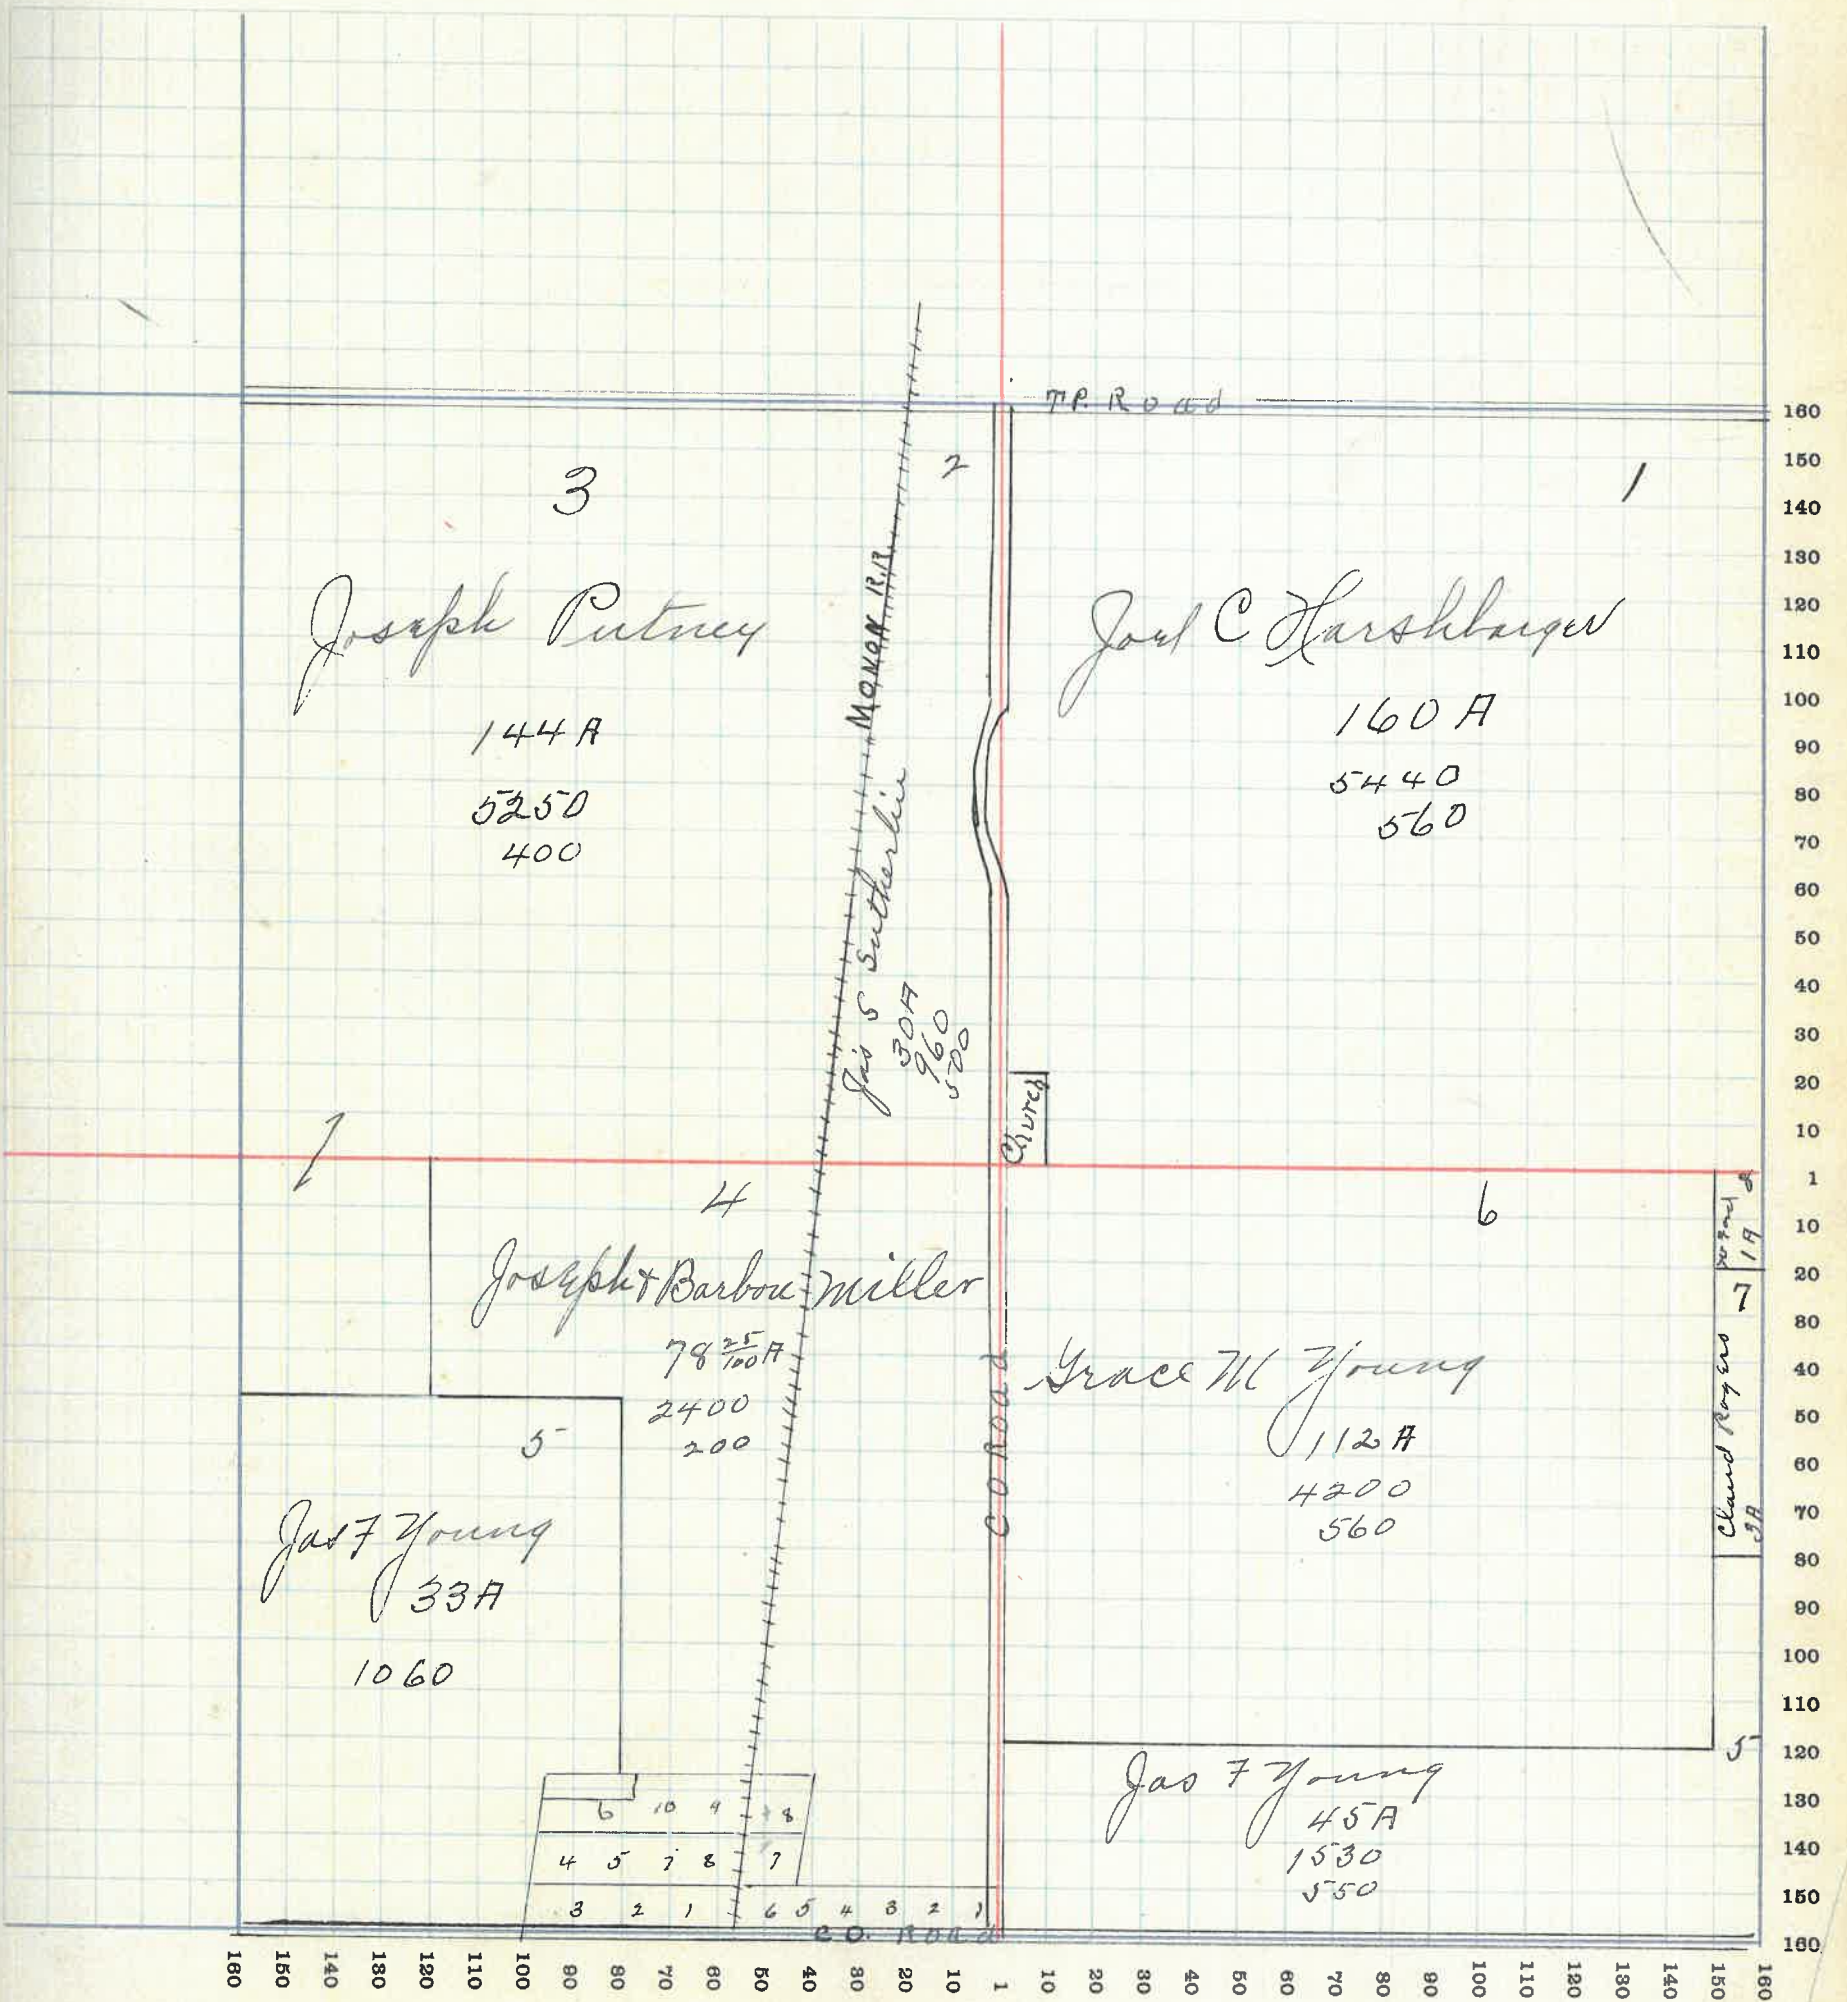 TP. Road
3
2
1
Joseph Putney
144 A
5250
400
MONON R.R.
Jas S Sutherlin
30A
960
500
Joel C Harshbarger
160 A
5440
560
Church
1
4
Joseph & Barbou Miller
78 25/100 A
2400
200
5
Jas F Young
33A
1060
CO Road
6
Grace M Young
112 A
4200
560
1A
7
Claud Rogers
3A
5
Jas F Young
45A
1530
550
6 10 9 8
4 5 7 8 7
3 2 1 6 5 4 3 2 1
CO. Road
160
150
140
130
120
110
100
90
80
70
60
50
40
30
20
10
1
10
20
30
40
50
60
70
80
90
100
110
120
130
140
150
160
160 150 140 130 120 110 100 90 80 70 60 50 40 30 20 10 1 10 20 30 40 50 60 70 80 90 100 110 120 130 140 150 160